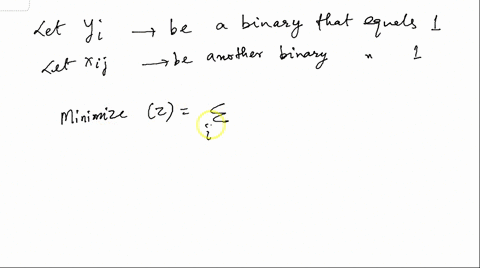 Let yi → be a binary that equels 1
Let xij → be another binary " 1
Minimize (z) = Σ
i